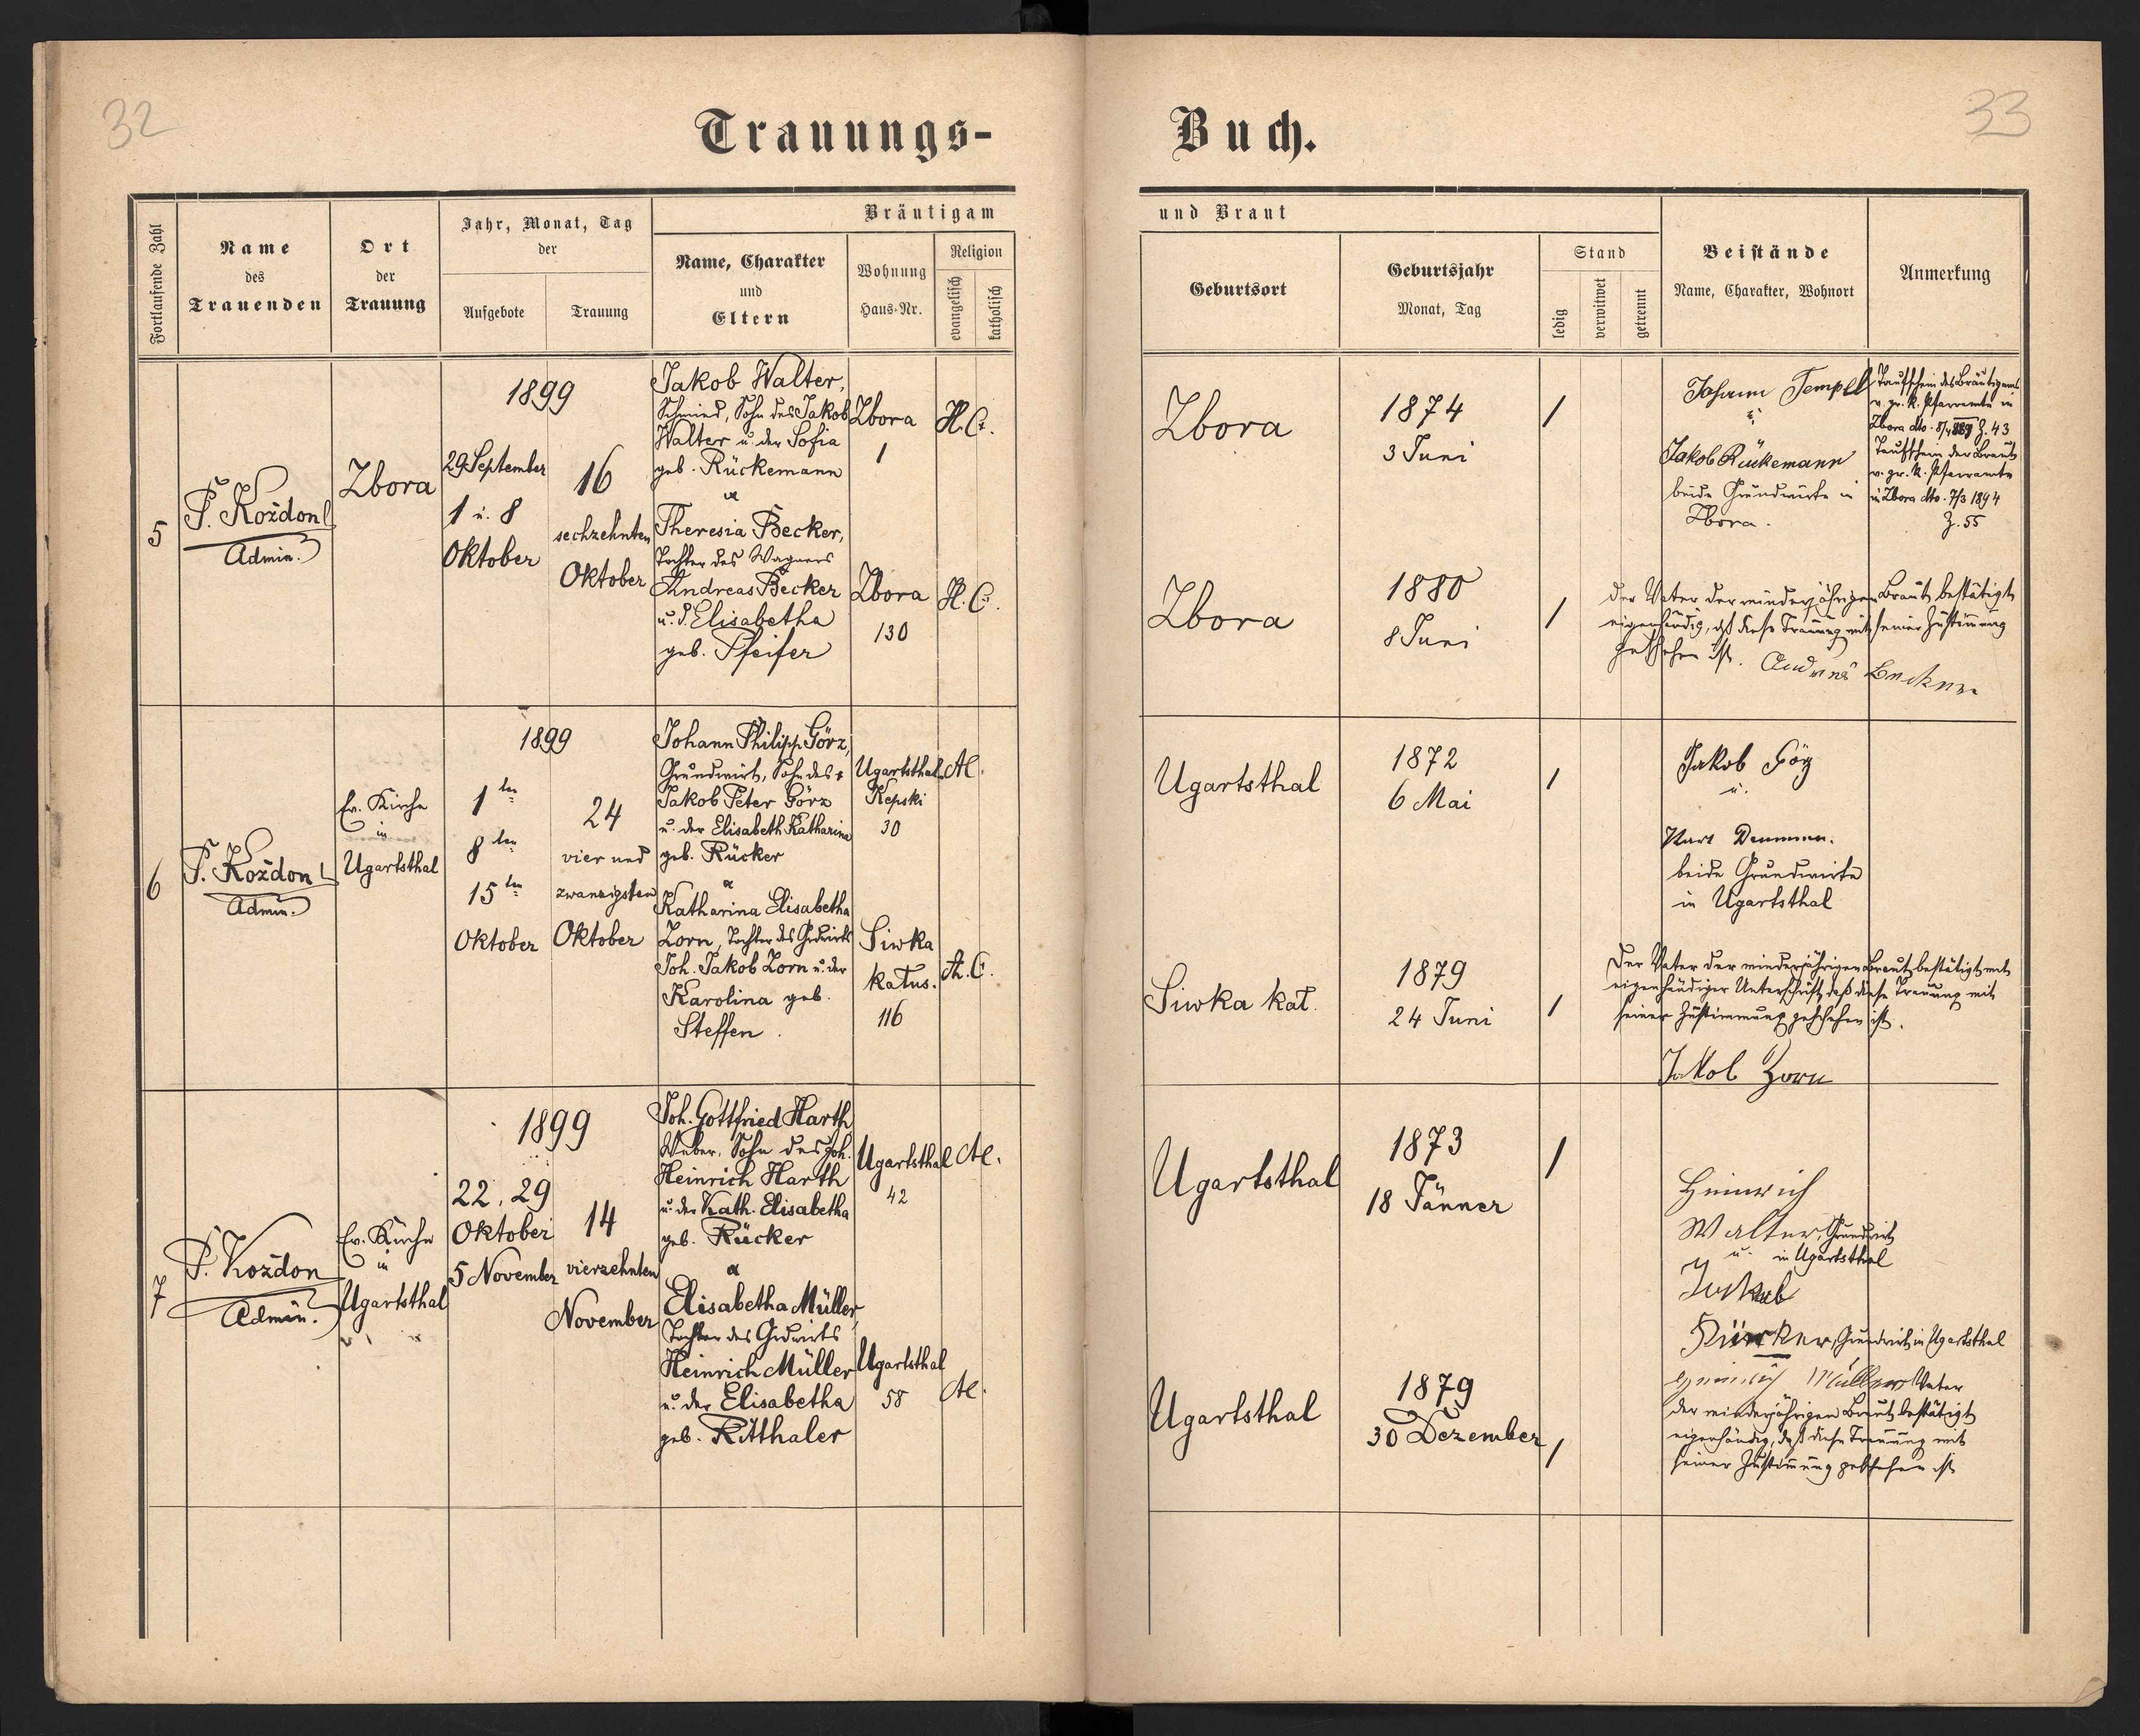 32
33
Trauungs-
Buch.
Fortlaufende Zahl
Name
des
Trauenden
Ort
der
Trauung
Jahr, Monat, Tag
der
Aufgebote
Trauung
Bräutigam
Name, Charakter
und
Eltern
Wohnung
Haus-Nr.
Religion
evangelisch
katholisch
und Braut
Geburtsort
Geburtsjahr
Monat, Tag
Stand
ledig
verwitwet
getrennt
Beistände
Name, Charakter, Wohnort
Anmerkung
5
P. Kożdon
Admin.
Zbora
1899
29 September
1 u. 8
Oktober
16
sechzehnten
Oktober
Jakob Walter,
Schmied, Sohn des Jakob
Walter u. der Sofia
geb. Rückemann
&
Theresia Becker,
Tochter des Wagners
Andreas Becker
u. d. Elisabetha
geb. Pfeifer
Zbora
1
H. C.
Zbora
130
H. C.
Zbora
1874
3 Juni
/
Zbora
1880
8 Juni
/
Johann Tempel
u.
Jakob Rückemann
beide Grundwirte in
Zbora.
Taufschein des Bräutigams
v. gr. k. Pfarramte in
Zbora dto. Z. 43
Taufschein der Braut
v. gr. k. Pfarramte
in Zbora dto. 7/3 1894
Z. 55
Der Vater der minderjährigen Braut bestätigt
eigenhändig, daß diese Trauung mit seiner Zustimmung
geschehen ist. Andreas Becker
6
P. Kożdon
Admin.
Ev. Kirche
in
Ugartsthal
1899
1 ten
8 ten
15 ten
Oktober
24
vier und
zwanzigsten
Oktober
Johann Philipp Görz,
Grundwirt, Sohn des +
Jakob Peter Görz
u. der Elisabeth Katharina
geb. Rücker
&
Katharina Elisabetha
Zorn, Tochter des Grdwirts
Joh. Jakob Zorn u. der
Karolina geb.
Steffen.
Ugartsthal
Kepski
30
A.
Siwka
kałus.
116
A. C.
Ugartsthal
1872
6 Mai
/
Siwka kał.
1879
24 Juni
/
Jakob
u.
beide Grundwirte
in Ugartsthal
Der Vater der minderjährigen Braut bestätigt mit
eigenhändiger Unterschrift, daß diese Trauung mit
seiner Zustimmung geschehen ist.
Jakob Zorn
7
P. Kożdon
Admin.
Ev. Kirche
in
Ugartsthal
1899
22, 29
Oktober
5 November
14
vierzehnten
November
Joh. Gottfried Harth
Weber, Sohn des Joh.
Heinrich Harth
u. der Kath. Elisabetha
geb. Rücker
&
Elisabetha Müller,
Tochter des Grdwirts
Heinrich Müller
u. der Elisabetha
geb. Ritthaler
Ugartsthal
42
A.
Ugartsthal
58
A.
Ugartsthal
1873
18 Jänner
/
Ugartsthal
1879
30 Dezember
/
Heinrich
Walter, Grundwirt
u. in Ugartsthal
Jakob
Rücker, Grundwirt in Ugartsthal
Heinrich Müller Vater
der minderjährigen Braut bestätigt
eigenhändig, daß diese Trauung mit
seiner Zustimmung geschehen ist